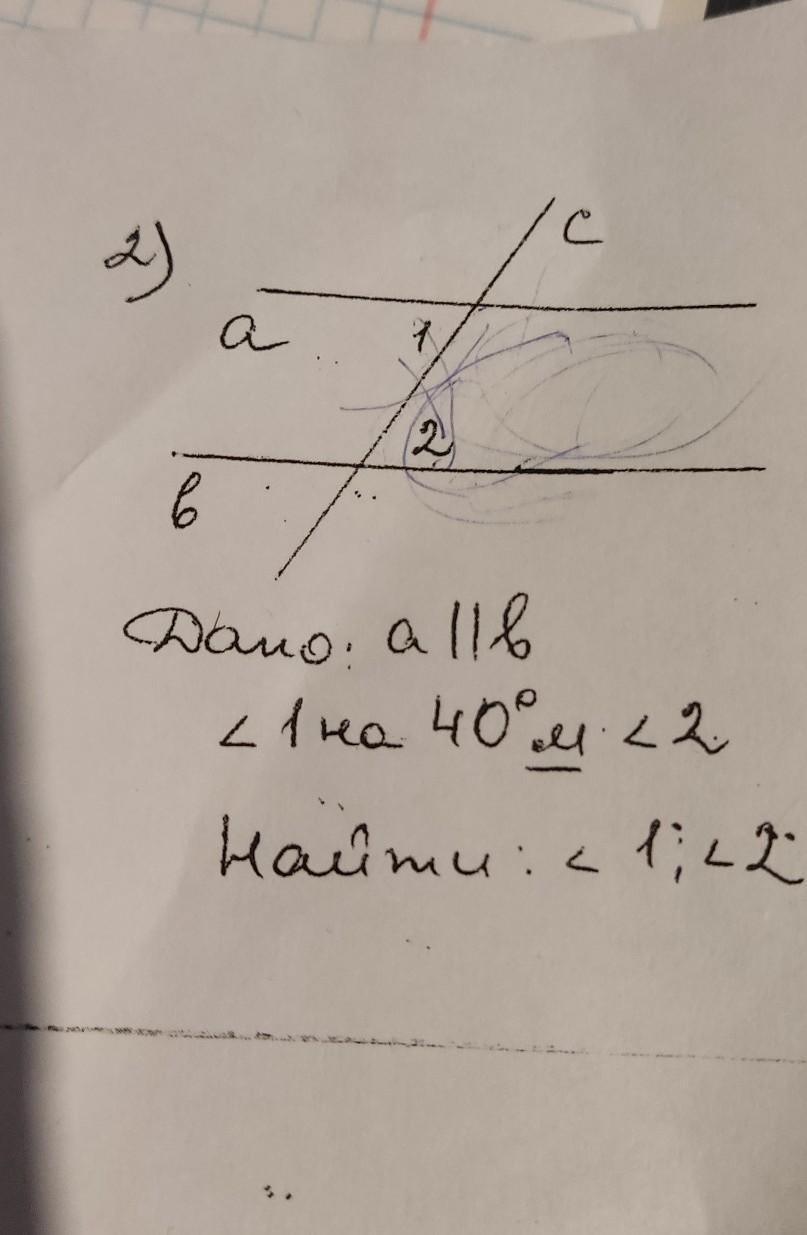 2)
c
a
1
2
b
Дано: a || b
< 1 на 40° м. < 2
Найти: < 1; < 2